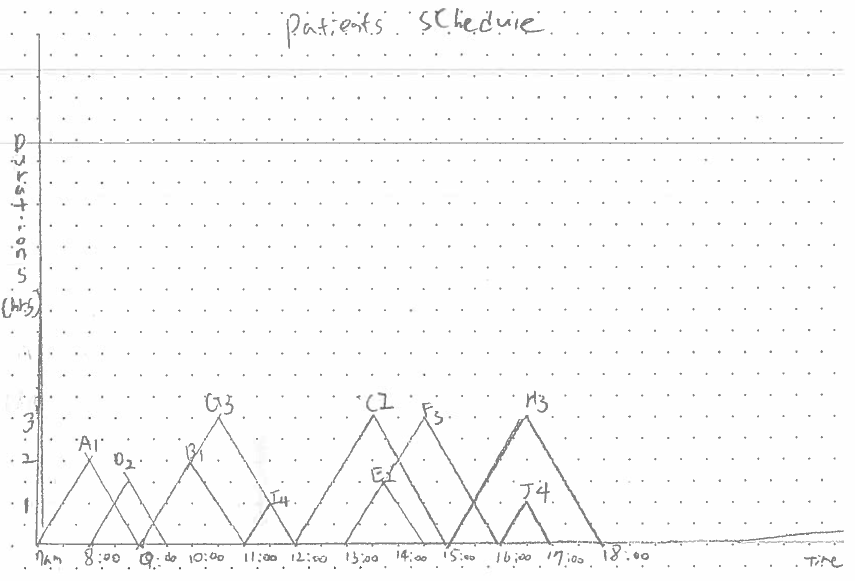 Patients Schedule
Durations
(hrs)
G3
C1
F3
H3
3
A1
D2
B1
2
E2
I4
J4
1
7am 8:00 9:00 10:00 11:00 12:00 13:00 14:00 15:00 16:00 17:00 18:00 Time